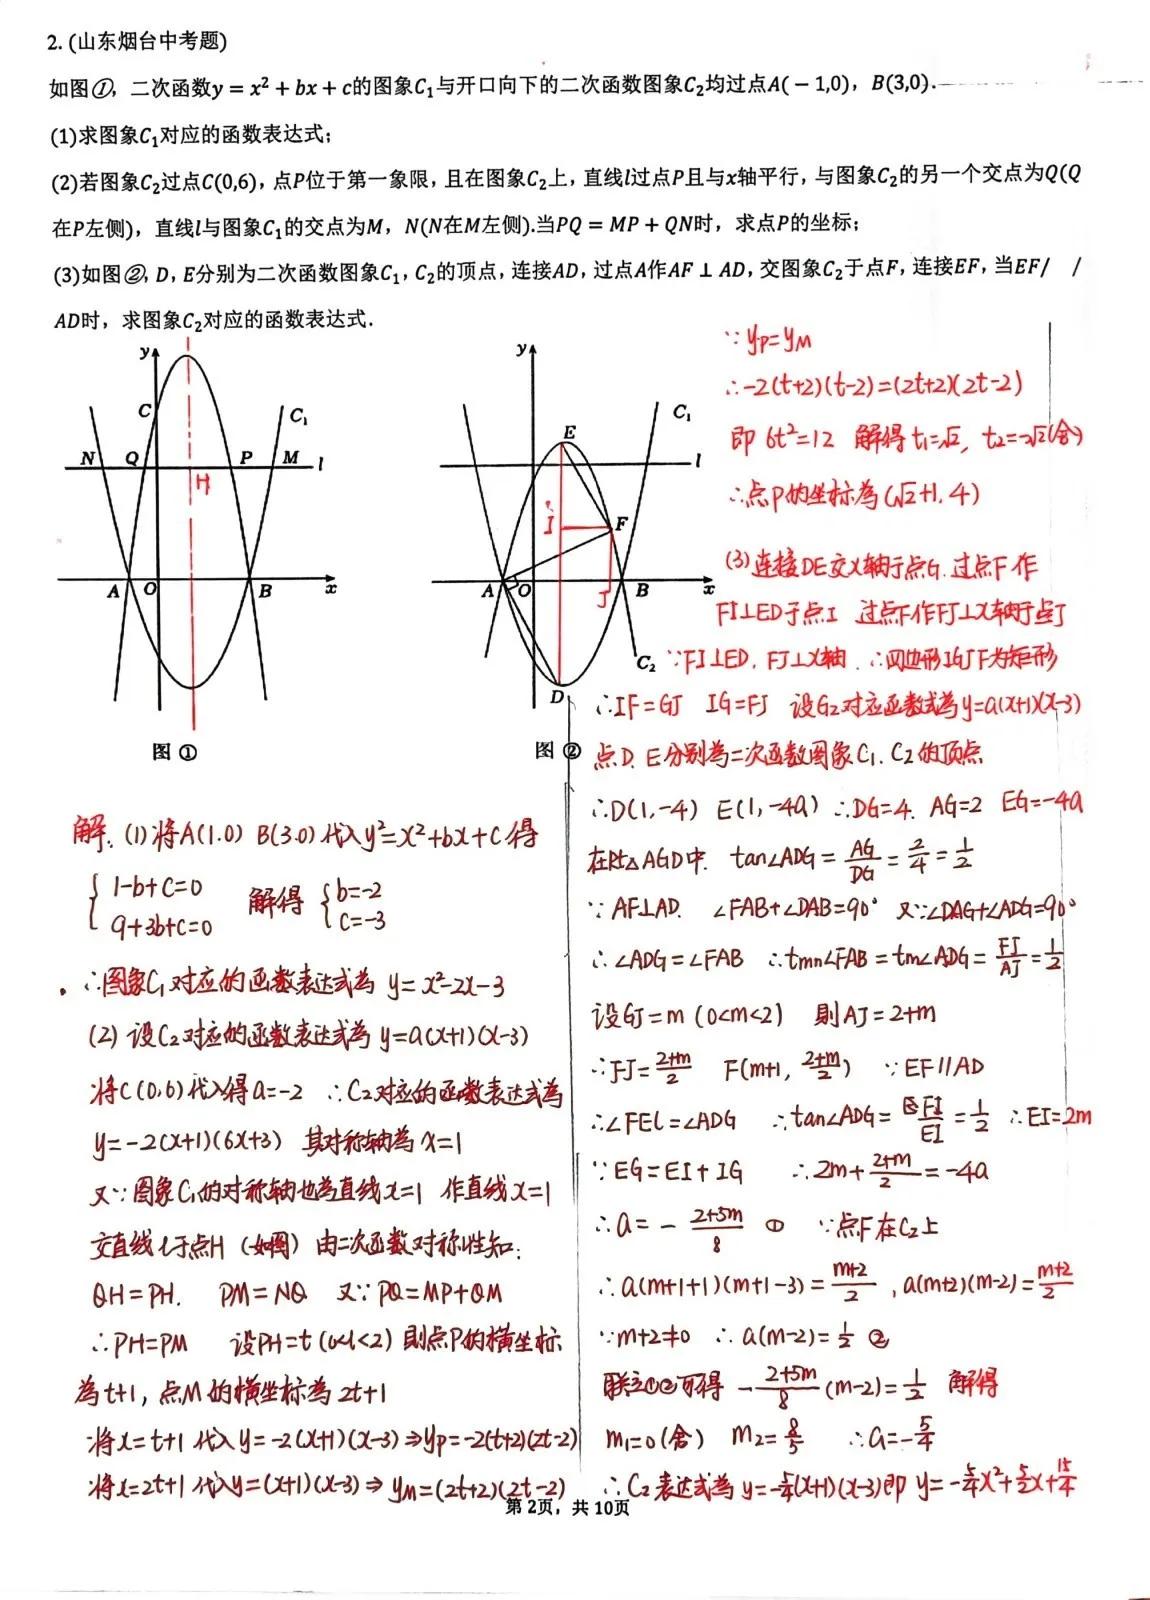 2. (山东烟台中考题)
如图①, 二次函数y = x² + bx + c的图象C₁与开口向下的二次函数图象C₂均过点A( − 1,0), B(3,0).
(1)求图象C₁对应的函数表达式;
(2)若图象C₂过点C(0,6), 点P位于第一象限, 且在图象C₂上, 直线l过点P且与x轴平行, 与图象C₂的另一个交点为Q(Q
在P左侧), 直线l与图象C₁的交点为M, N(N在M左侧).当PQ = MP + QN时, 求点P的坐标;
(3)如图②, D, E分别为二次函数图象C₁, C₂的顶点, 连接AD, 过点A作AF ⊥ AD, 交图象C₂于点F, 连接EF, 当EF/ /
AD时, 求图象C₂对应的函数表达式.
y
C
C₁
N Q P M l
H
A O B x
图 ①
y
E
C₁
l
I
F
A O J B x
C₂
D
图 ②
解. (1) 将A(1.0) B(3.0) 代入y²=x²+bx+c 得
{ 1-b+c=0
9+3b+c=0 解得 { b=-2
c=-3
∴图象C₁对应的函数表达式为 y=x²-2x-3
(2) 设C₂对应的函数表达式为 y=a(x+1)(x-3)
将C(0,6)代入得a=-2 ∴C₂对应的函数表达式为
y=-2(x+1)(6x+3) 其对称轴为 x=1
又∵图象C₁的对称轴也为直线x=1 作直线x=1
交直线l于点H (如图) 由二次函数对称性知:
QH=PH. PM=NQ 又∵PQ=MP+QM
∴PH=PM 设PH=t (0<t<2) 则点P的横坐标
为t+1, 点M的横坐标为2t+1
将x=t+1 代入y=-2(x+1)(x-3)⇒yP=-2(t+2)(2t-2)
将x=2t+1 代入y=(x+1)(x-3)⇒yM=(2t+2)(2t-2)
∵yP=yM
∴-2(t+2)(t-2)=(2t+2)(2t-2)
即 6t²=12 解得 t₁=√2, t₂=-√2(舍)
∴点P的坐标为(√2+1, 4)
(3)连接DE交X轴于点G. 过点F作
FI⊥ED于点I 过点F作FJ⊥X轴于点J
∵FI⊥ED, FJ⊥X轴. ∴四边形IGJF为矩形
∴IF=GJ IG=FJ 设G₂对应函数式为y=a(x+1)(x-3)
点D、E分别为二次函数图象C₁、C₂的顶点
∴D(1,-4) E(1,-4a) ∴DG=4. AG=2 EG=-4a
在Rt△AGD中. tan∠ADG = AG/DG = 2/4 = 1/2
∵AF⊥AD. ∠FAB+∠DAB=90° 又∵∠DAG+∠ADG=90°
∴∠ADG=∠FAB ∴tmn∠FAB=tm∠ADG= FJ/AJ = 1/2
设GJ=m (0<m<2) 则AJ=2+m
∴FJ= (2+m)/2 F(m+1, (2+m)/2) ∵EF∥AD
∴∠FEI=∠ADG ∴tan∠ADG= FI/EI = 1/2 ∴EI=2m
∵EG=EI+IG ∴2m+ (2+m)/2 =-4a
∴a=- (2+5m)/8 ① ∵点F在C₂上
∴a(m+1+1)(m+1-3)= (m+2)/2 , a(m+2)(m-2)= (m+2)/2
∵m+2≠0 ∴a(m-2)= 1/2 ②
联立①②可得 - (2+5m)/8 (m-2)= 1/2 解得
m₁=0(舍) m₂= 8/5 ∴a=- 5/4
∴C₂表达式为 y=-5/4(x+1)(x-3)即 y=-5/4x²+5/2x+15/4
第 2页, 共 10页